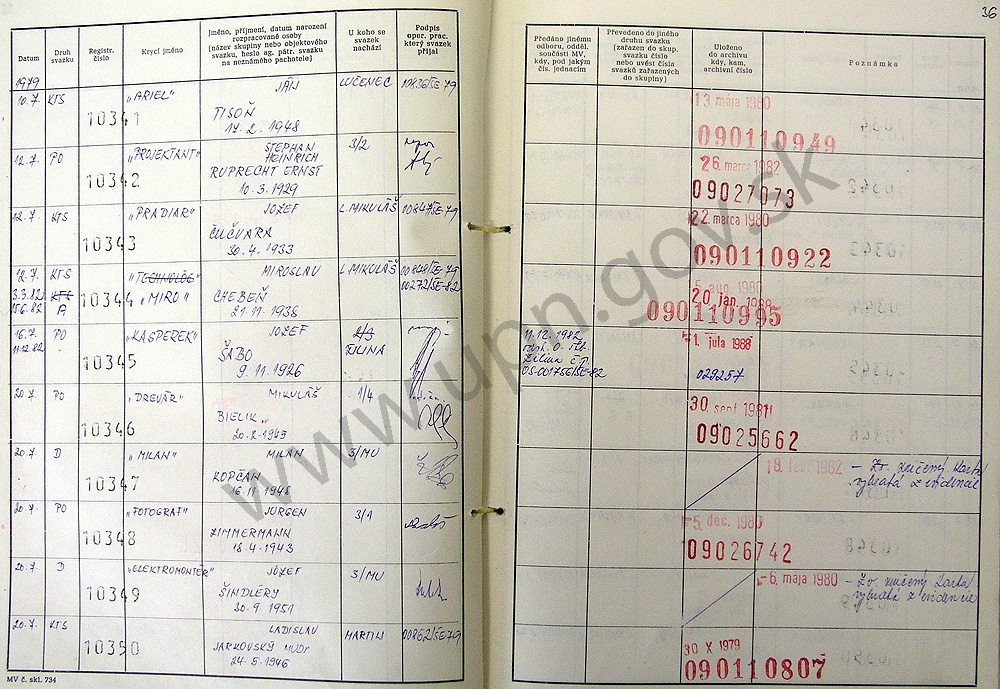 36
Datum
Druh svazku
Registr. číslo
Krycí jméno
Jméno, příjmení, datum narození
rozpracované osoby
(název skupiny nebo objektového
svazku, heslo ag. pátr. svazku
na neznámého pachatele)
U koho se
svazek
nachází
Podpis
oper. prac.
který svazek
přijal
Předáno jinému
odboru, odděl.
součásti MV,
kdy, pod jakým
čís. jednacím
Převedeno do jiného
druhu svazku
(zařazen do skup.
svazku číslo
nebo uvést čísla
svazků zařazených
do skupiny)
Uloženo
do archivu
kdy, kam,
archivní číslo
Poznámka
1979
10.7. KTS 10341 „ARIEL" JÁN LUČENEC 00836/SE-79 13 mája 1980
TISOŇ 090110949
14. 2. 1948
12.7. PO 10342 „PROJEKTANT" STEPHAN 3/2 26. 1982
HEINRICH
RUPRECHT ERNST 09027073
10. 3. 1929
12.7 KTS 10343 „PRADIAR" JOZEF L. MIKULÁŠ 00847/SE-79 22. marca 1980
ČUČVARA 090110922
30. 4. 1933
12.7. KTS 10344 „TECHNOLÓG" MIROSLAV L. MIKULÁŠ 00848/SE-79
3.3.82 KTS „MIRO" CHEBEŇ 00272/SE-82 20. jan. 1988
15.6.82 A 21. 11. 1938 090110995
16.7. PO 10345 „KASPEREK" JOZEF 2/3 11.12.1982 1. júla 1988
11.12.82 ŠABO ŽILINA
9. 11. 1926 Žilina č.p. 029257
OS-001756/SE-82
20.7 PO 10346 „DREVÁR" MIKULÁŠ 1/4 30. sept 1981
BIELIK 09025662
20. 2. 1943
20.7 D 10347 „MILAN" MILAN 3/MU 1982 – Zv. zničený karta
KOPČAN vybratá z evidencie
16. 11. 1948
20.7. PO 10348 „FOTOGRAF" JÜRGEN 3/1 5. dec. 1980
ZIMMERMANN 09026742
18. 4. 1943
20.7. D 10349 „ELEKTROMONTÉR" JOZEF 3/MU 6. mája 1980 – Zv. zničený karta
ŠINDLÉRY vybratá z evidencie
30. 9. 1951
20.7. KTS 10350 LADISLAV MARTIN 00862/SE-79 30 X 1979
JARKOVSKÝ MUDr 090110807
24. 5. 1946
MV č. skl. 734
www.upn.gov.sk